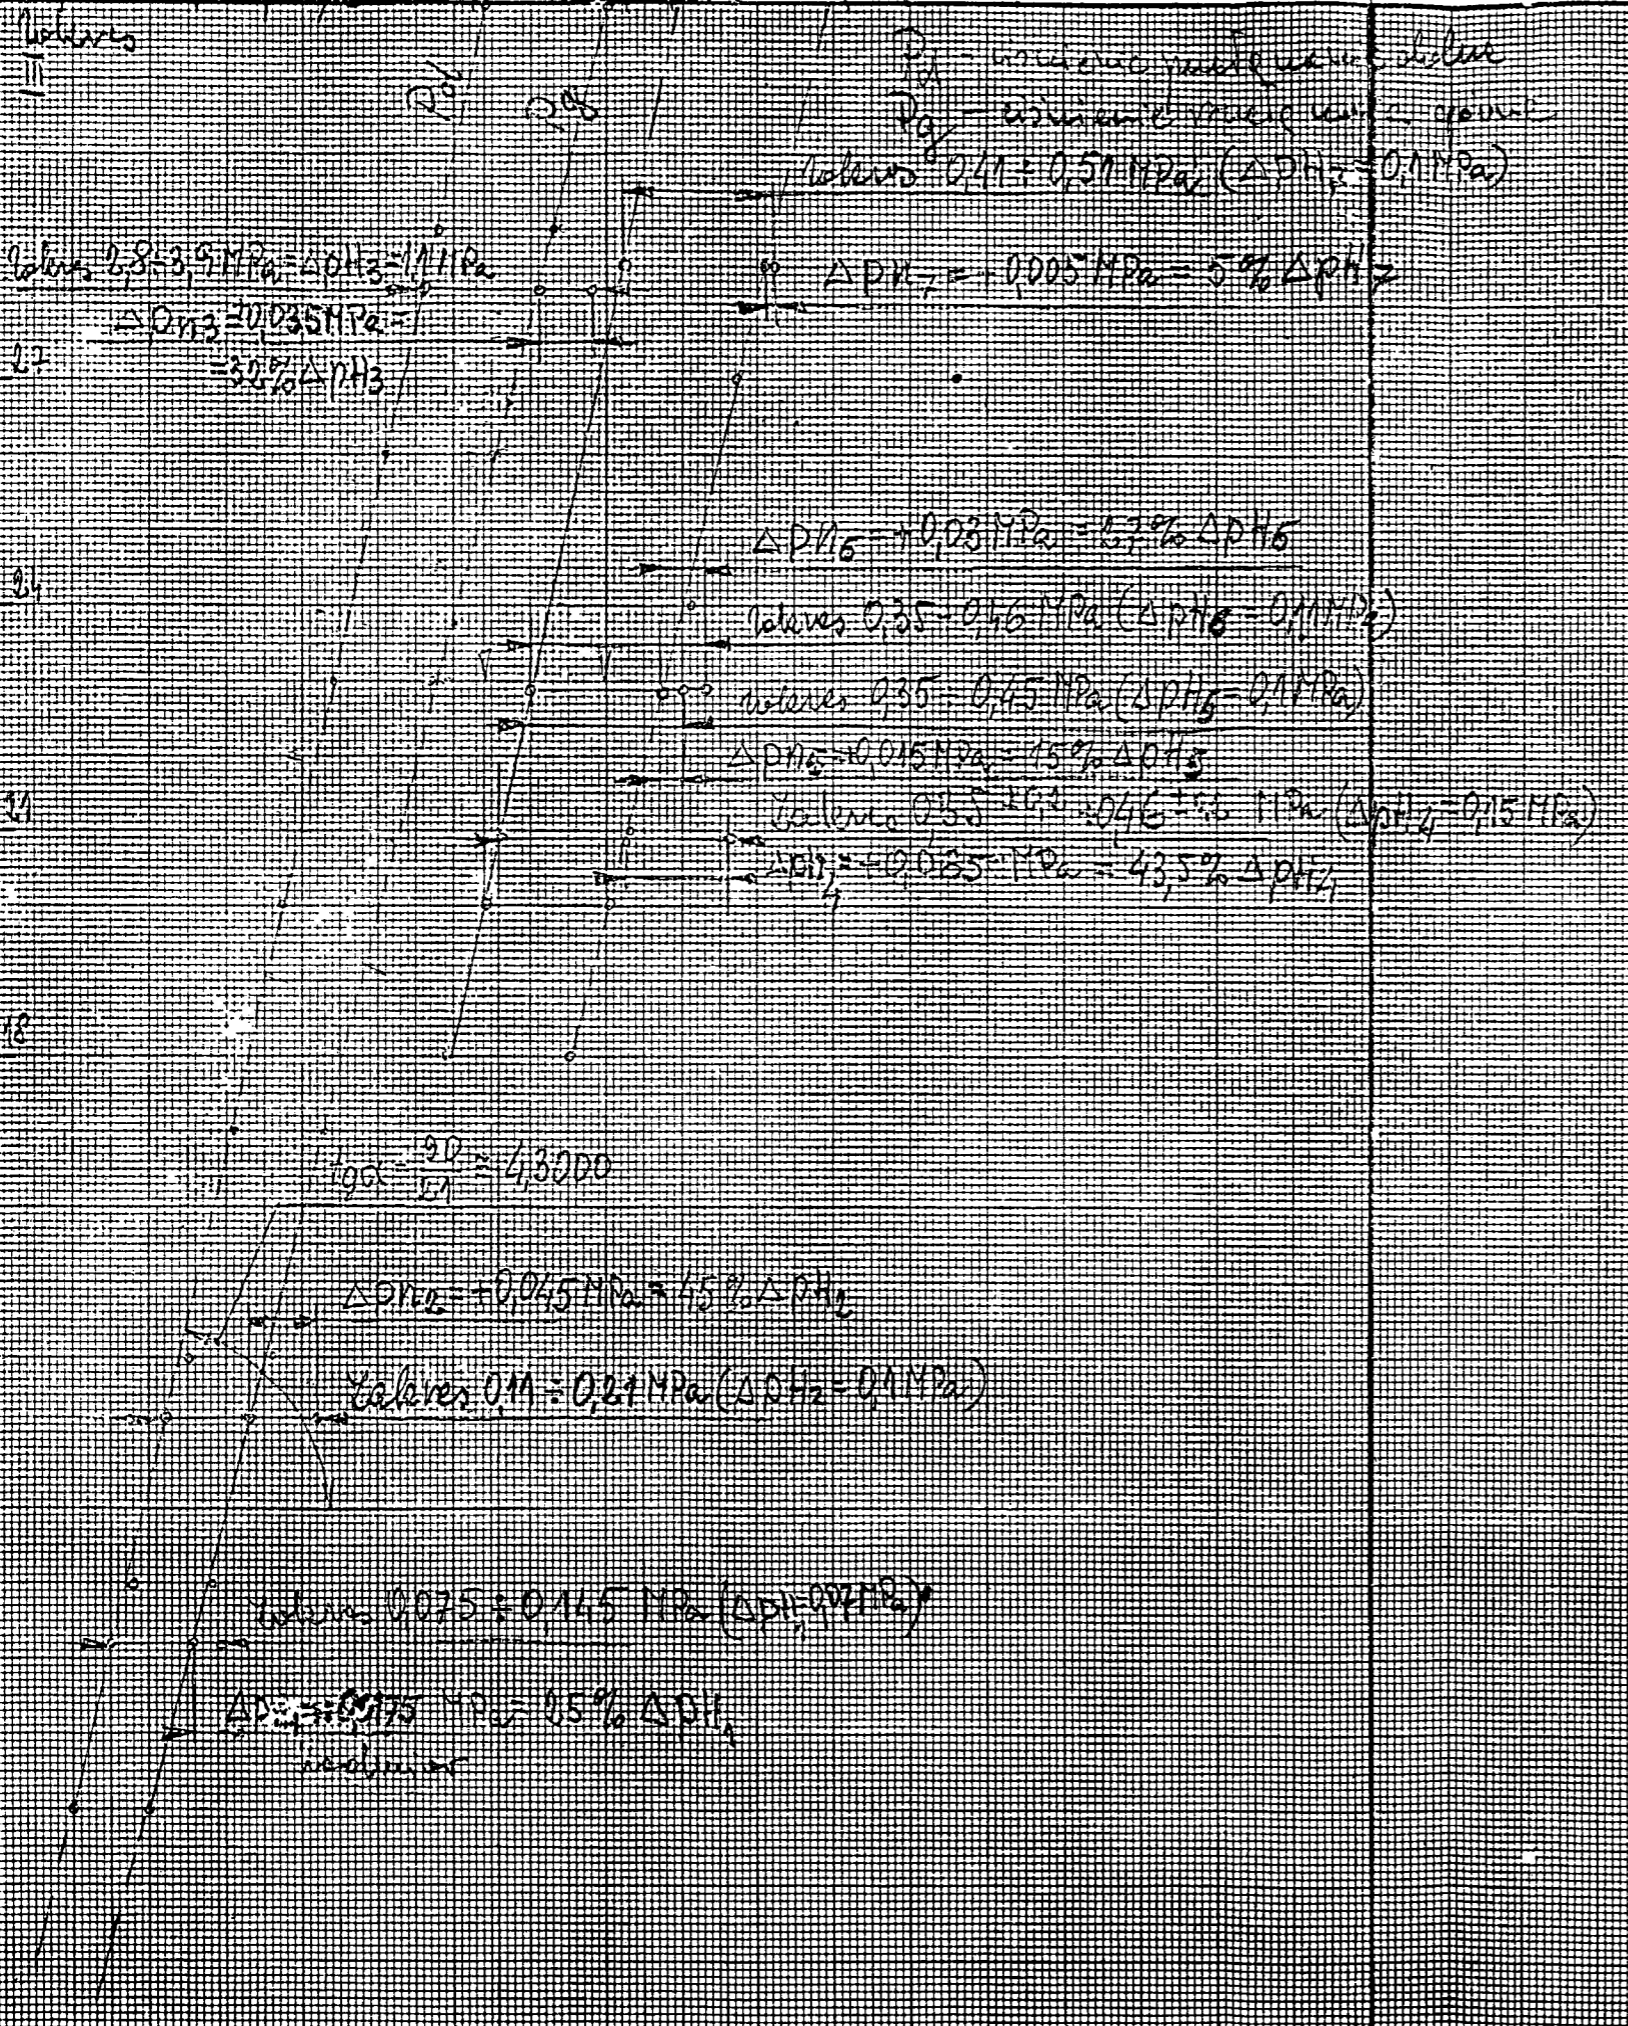 Zakres
III
Pd
Pg
Pd – ciśnienie
Pg – ciśnienie
Zakres 0,41 ÷ 0,51 MPa (ΔpH7 = 0,1 MPa)
Zakres 2,8÷3,9 MPa = ΔpH3 = 1,1 MPa
Δpn7 = +0,005 MPa = 5% ΔpH7
Δpn3 = +0,035 MPa =
27
= 32% ΔpH3
Δpn6 = +0,03 MPa = 27% ΔpH6
24
Zakres 0,35 ÷ 0,46 MPa (ΔpH6 = 0,11 MPa)
Zakres 0,35 ÷ 0,45 MPa (ΔpH5 = 0,1 MPa)
Δpn5 = +0,015 MPa = 15% ΔpH5
21
Zakres MPa (ΔpH4 = 0,15 MPa)
Δpn4 = +0,065 MPa = 43,5% ΔpH4
18
tgα = 90/21 = 4,3000
Δpn2 = +0,045 MPa = 45% ΔpH2
Zakres 0,11 ÷ 0,21 MPa (ΔpH2 = 0,1 MPa)
Zakres 0,075 ÷ 0,145 MPa (ΔpH1 = 0,07 MPa)
MPa = 25% ΔpH1